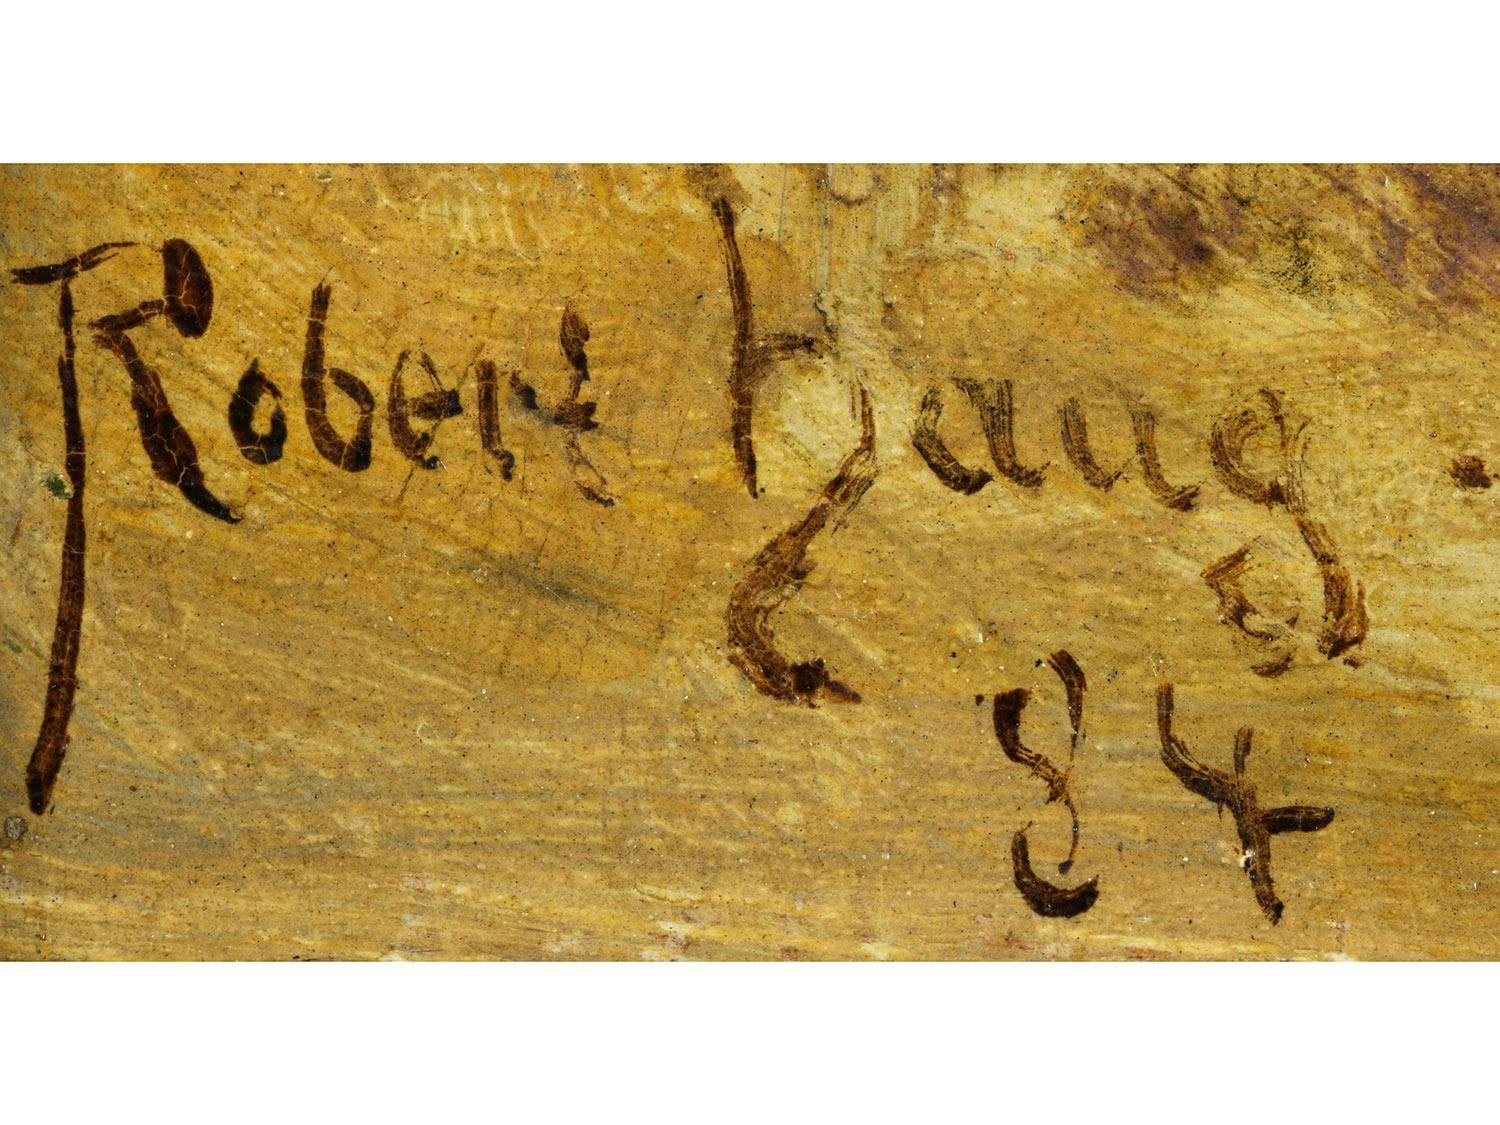 Robert Haug.
84